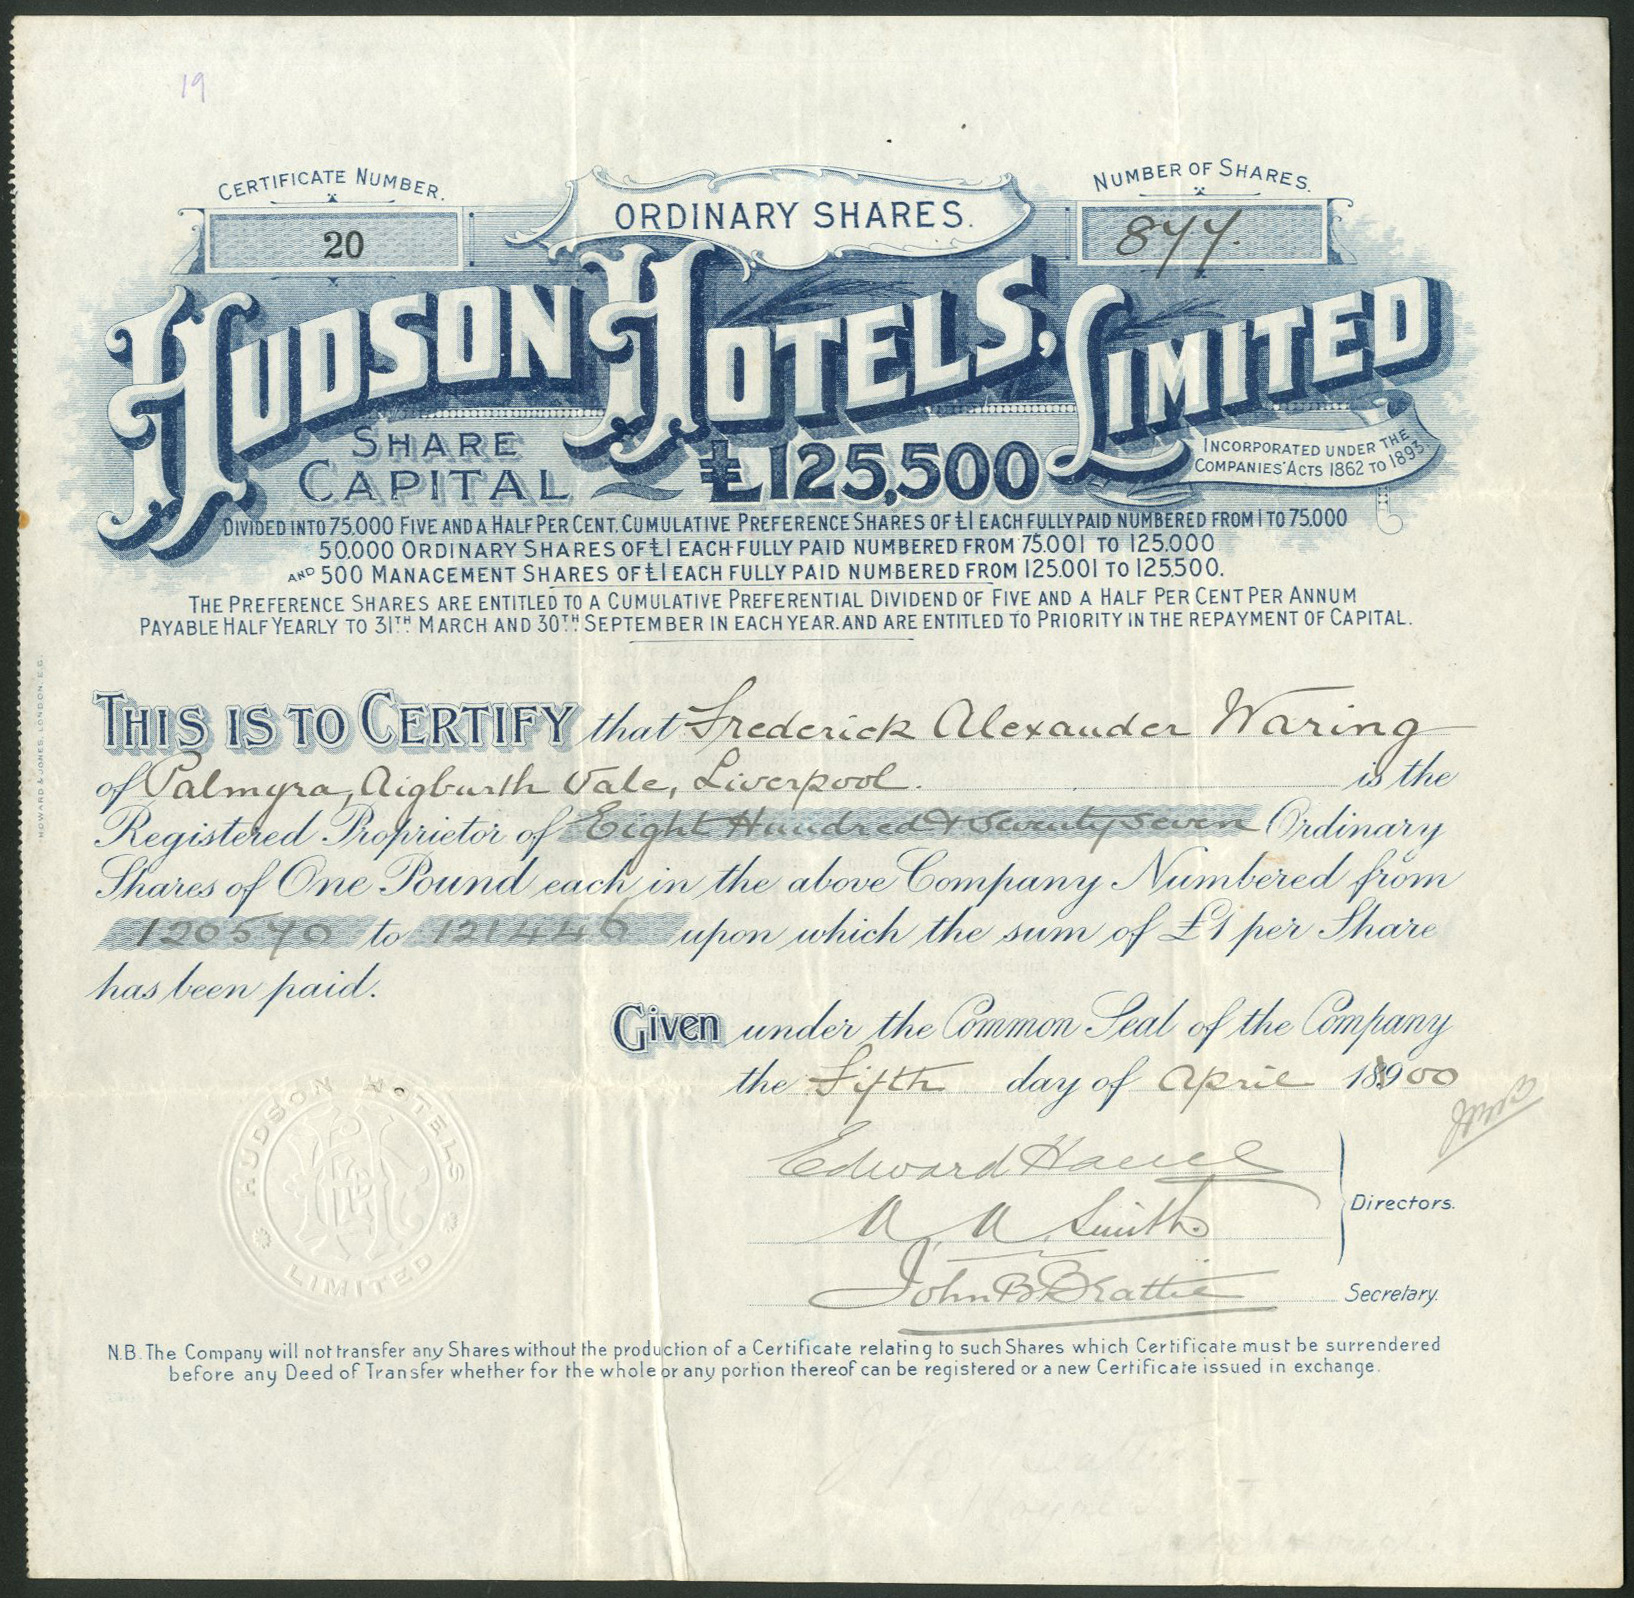 19
CERTIFICATE NUMBER.
20
ORDINARY SHARES.
NUMBER OF SHARES.
877.
HUDSON HOTELS, LIMITED
SHARE CAPITAL £125,500
INCORPORATED UNDER THE
COMPANIES' ACTS 1862 TO 1893
DIVIDED INTO 75.000 FIVE AND A HALF PER CENT. CUMULATIVE PREFERENCE SHARES OF £1 EACH FULLY PAID NUMBERED FROM 1 TO 75.000
50.000 ORDINARY SHARES OF £1 EACH FULLY PAID NUMBERED FROM 75.001 TO 125.000
AND 500 MANAGEMENT SHARES OF £1 EACH FULLY PAID NUMBERED FROM 125.001 TO 125.500.
THE PREFERENCE SHARES ARE ENTITLED TO A CUMULATIVE PREFERENTIAL DIVIDEND OF FIVE AND A HALF PER CENT PER ANNUM
PAYABLE HALF YEARLY TO 31TH MARCH AND 30TH SEPTEMBER IN EACH YEAR. AND ARE ENTITLED TO PRIORITY IN THE REPAYMENT OF CAPITAL.
THIS IS TO CERTIFY that Frederick Alexander Waring
of Palmyra, Aigburth Vale, Liverpool. is the
Registered Proprietor of Eight Hundred & Seventy Seven Ordinary
Shares of One Pound each in the above Company Numbered from
120570 to 121446 upon which the sum of £1 per Share
has been paid.
Given under the Common Seal of the Company
the Fifth day of April 1900
HUDSON HOTELS LIMITED
Edward
Smith
Directors.
John B Beattie
Secretary.
N.B. The Company will not transfer any Shares without the production of a Certificate relating to such Shares which Certificate must be surrendered
before any Deed of Transfer whether for the whole or any portion thereof can be registered or a new Certificate issued in exchange.
HOWARD & JONES, LONDON. E.C.